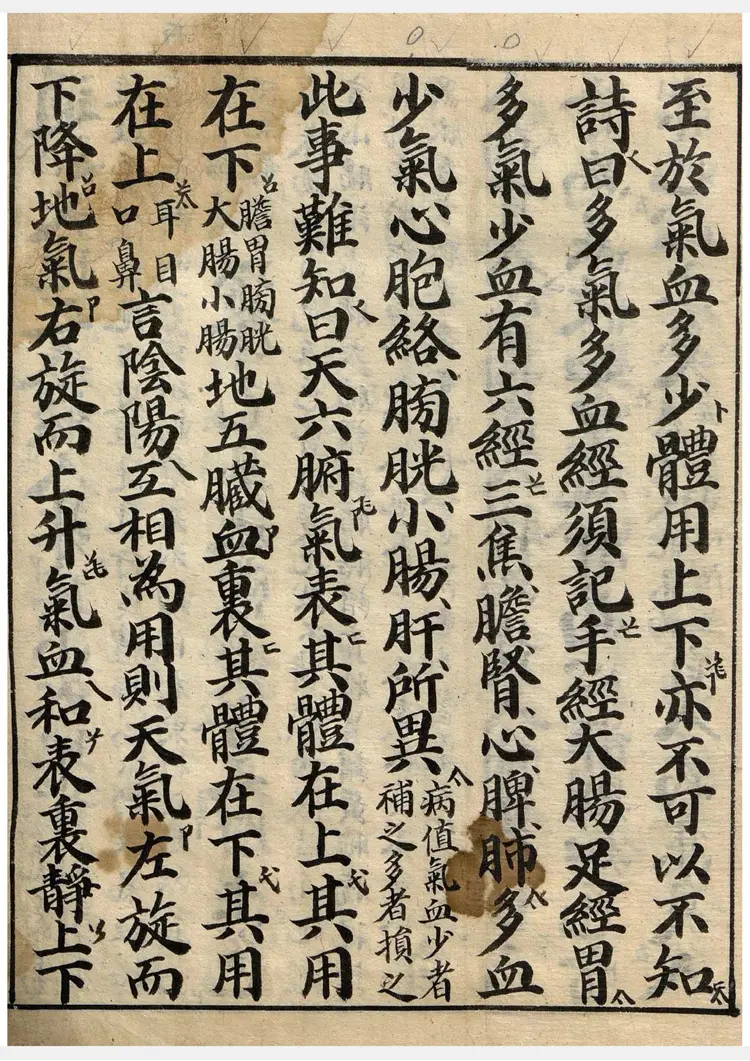 至於氣血多少體用上下亦不可以不知
詩曰多氣多血經須記手經大腸足經胃
多氣少血有六經三焦膽腎心脾肺多血
少氣心胞絡膀胱小腸肝所異病值氣血少者補之多者損之
此事難知曰天六腑氣表其體在上其用
在下膽胃膀胱大腸小腸地五臟血裏其體在下其用
在上耳目口鼻言陰陽互相為用則天氣左旋而
下降地氣右旋而上升氣血和表裏靜上下